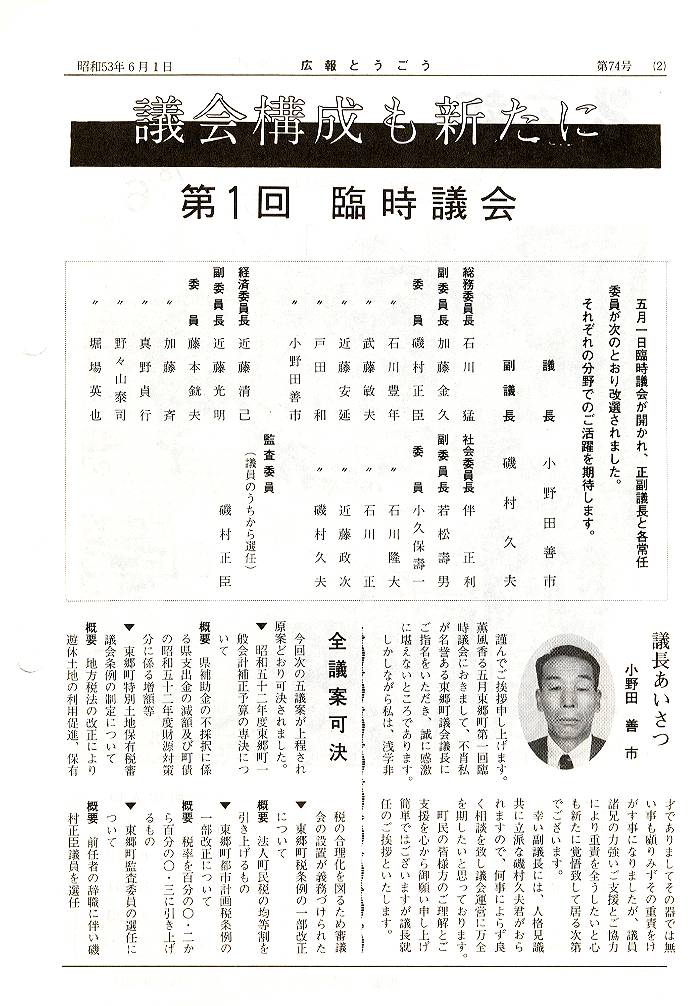 昭和53年6月1日
広報とうごう
第74号 (2)
議会構成も新たに
第1回 臨時議会
五月一日臨時議会が開かれ、正副議長と各常任
委員が次のとおり改選されました。
それぞれの分野でのご活躍を期待します。
議長 小野田善市
副議長 磯村久夫
総務委員長 石川猛
副委員長 加藤金久
委員 磯村正臣
〃 石川豊年
〃 武藤敏夫
〃 近藤安延
〃 戸田和
〃 小野田善市
社会委員長 伴正利
副委員長 若松壽男
委員 小久保壽一
〃 石川隆大
〃 石川正
〃 近藤政次
〃 磯村久夫
経済委員長 近藤清己
副委員長 近藤光明
委員 藤本銃夫
〃 加藤斉
〃 真野貞行
〃 野々山泰司
〃 堀場英也
監査委員
(議員のうちから選任)
磯村正臣
議長あいさつ
小野田善市
謹んでご挨拶申し上げます。
薫風香る五月東郷町第一回臨
時議会におきまして、不肖私
が名誉ある東郷町議会議長に
ご指名をいただき、誠に感激
に堪えないところであります。
しかしながら私は、浅学非
才でありましてその器では無
い事も顧りみずその重責をけ
がす事になりましたが、議員
諸兄の力強いご支援とご協力
により重責を全うしたいと心
も新たに覚悟致して居る次第
でございます。
幸い副議長には、人格見識
共に立派な磯村久夫君がおら
れますので、何事によらず良
く相談を致し議会運営に万全
を期したいと思っております。
町民の皆様方のご理解とご
支援を心から御願い申し上げ
簡単ではございますが議長就
任のご挨拶といたします。
全議案可決
今回次の五議案が上程され
原案どおり可決されました。
▼昭和五十二年度東郷町一
般会計補正予算の専決につ
いて
概要 県補助金の不採択に係
る県支出金の減額及び町債
の昭和五十二年度財源対策
分に係る増額等
▼東郷町特別土地保有税審
議会条例の制定について
概要 地方税法の改正により
遊休土地の利用促進、保有
税の合理化を図るため審議
会の設置が義務づけられた
▼東郷町税条例の一部改正
について
概要 法人町民税の均等割を
引き上げるもの
▼東郷町都市計画税条例の
一部改正について
概要 税率を百分の〇・二か
ら百分の〇・三に引き上げ
るもの
▼東郷町監査委員の選任に
ついて
概要 前任者の辞職に伴い磯
村正臣議員を選任